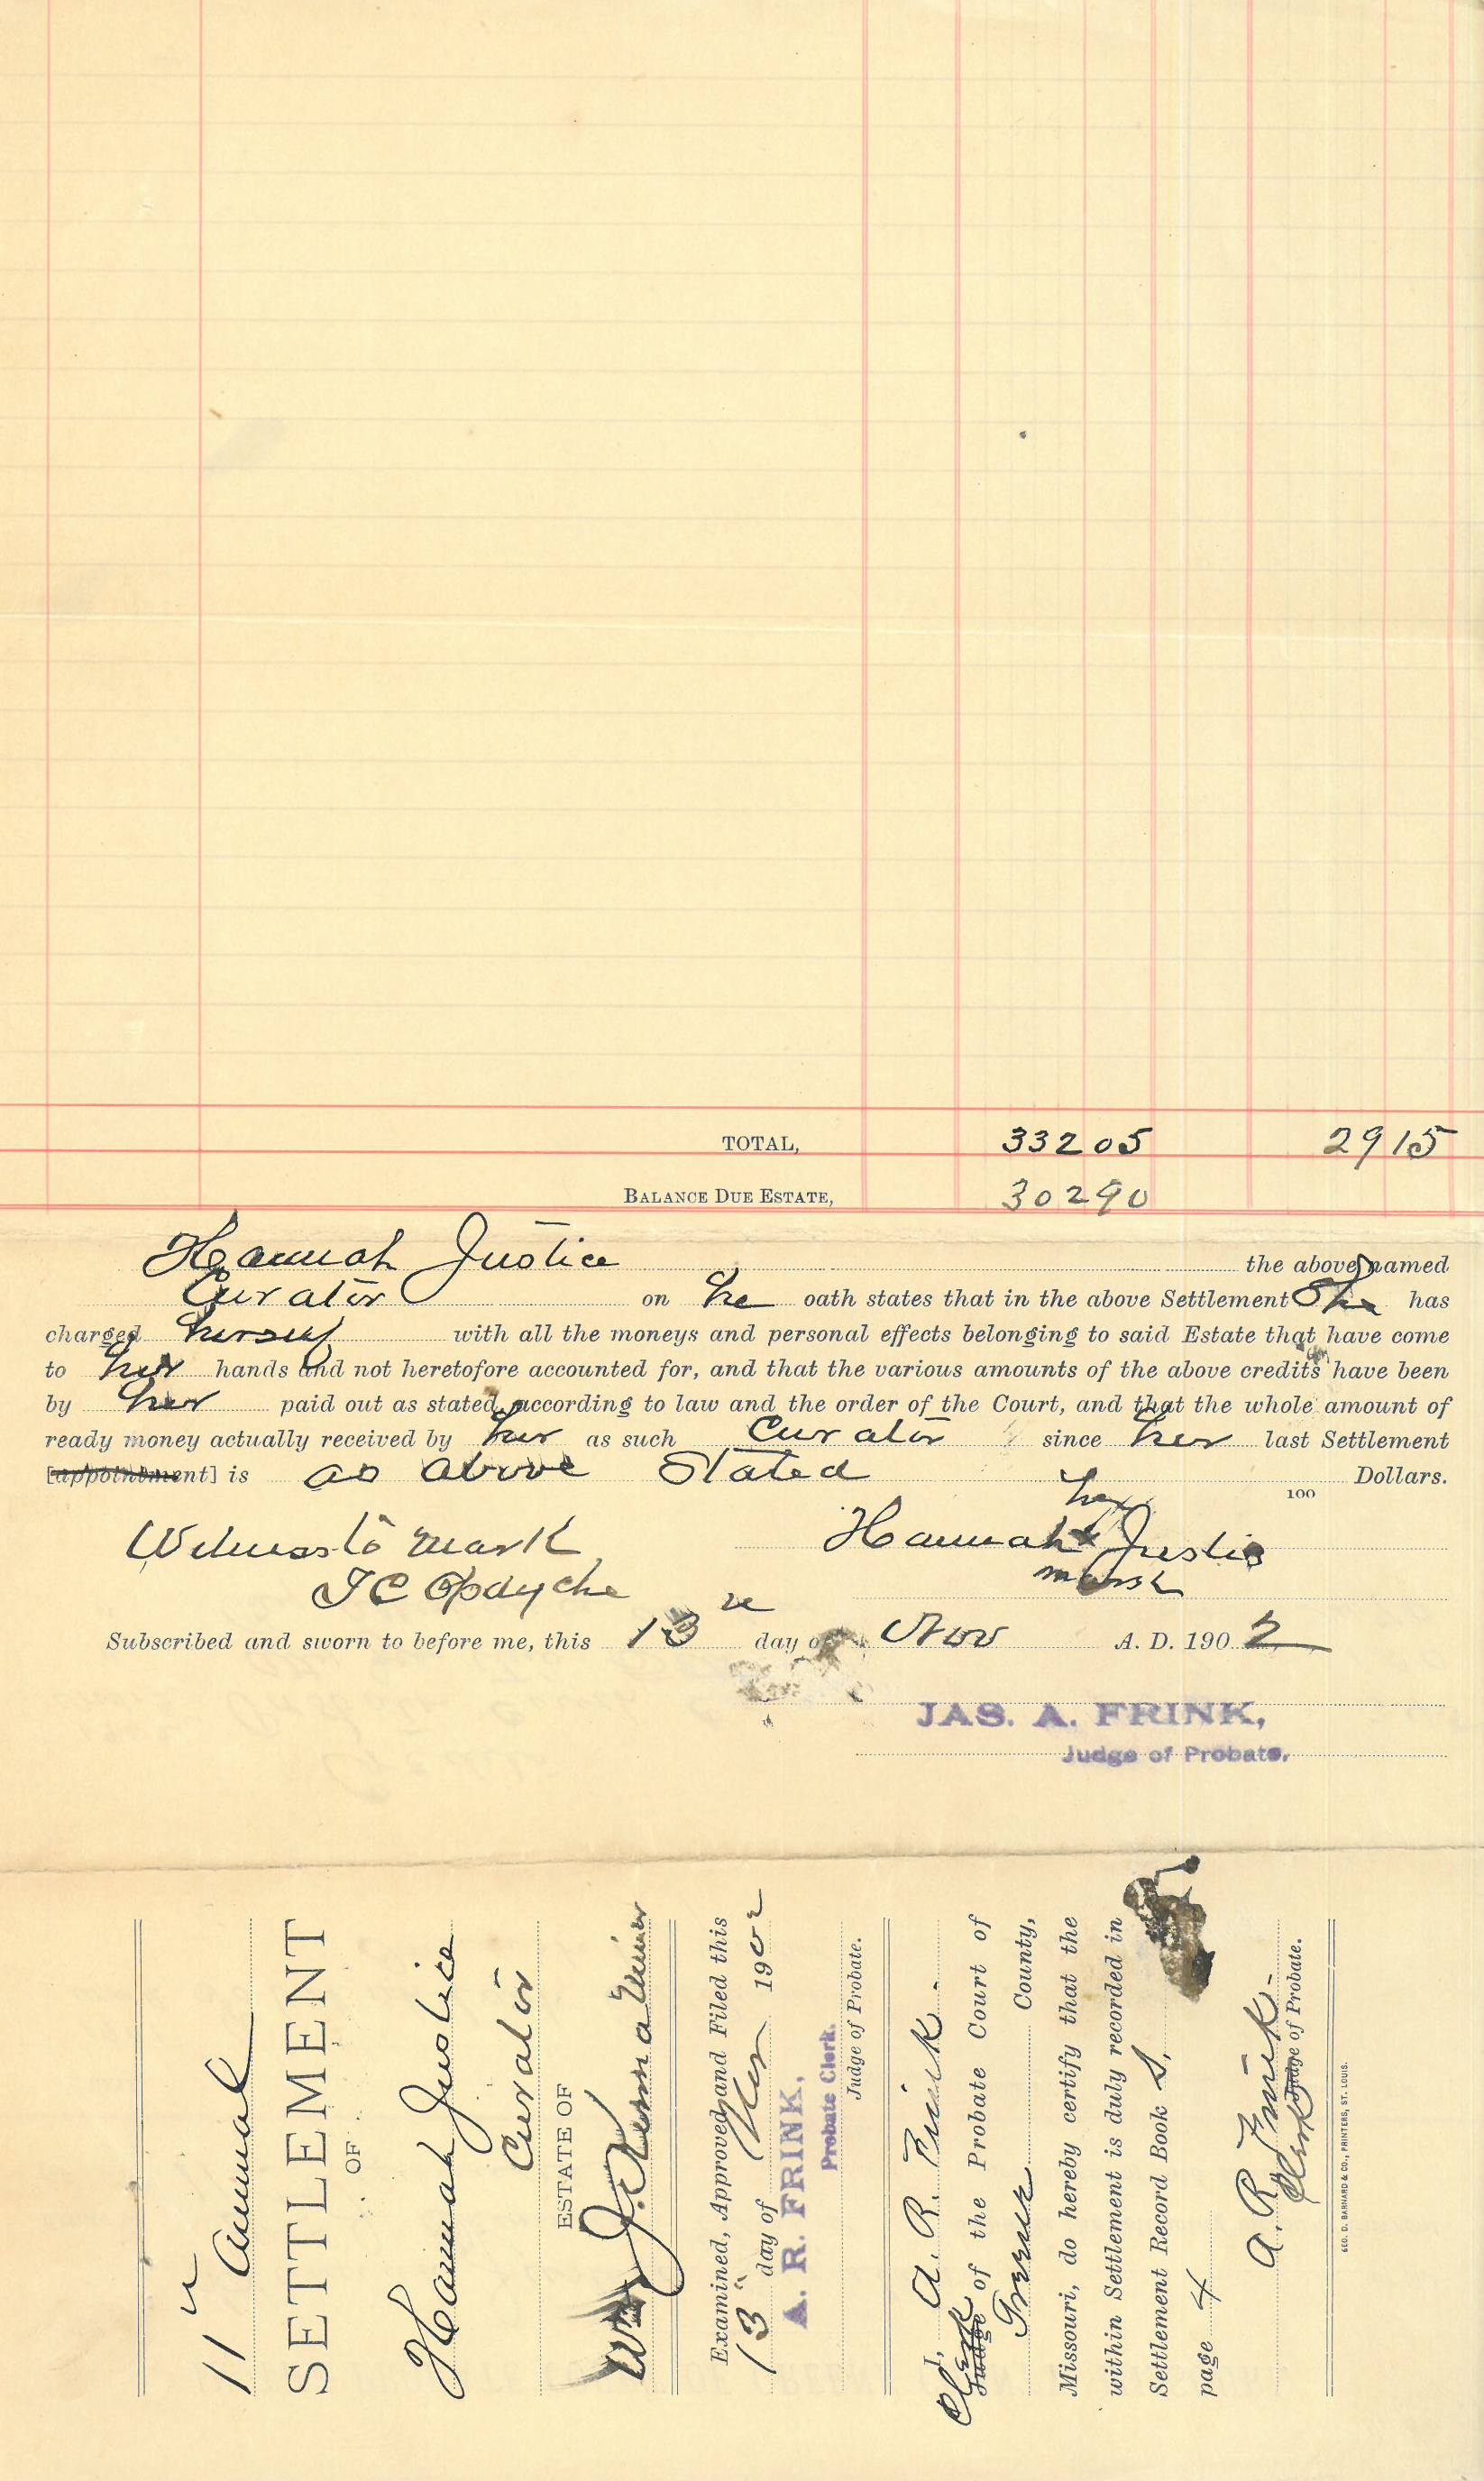 TOTAL, 33205 2915
BALANCE DUE ESTATE, 30290
Hannah Justice the above named
Curator on he oath states that in the above Settlement She has
charged herself with all the moneys and personal effects belonging to said Estate that have come
to her hands and not heretofore accounted for, and that the various amounts of the above credits have been
by her paid out as stated, according to law and the order of the Court, and that the whole amount of
ready money actually received by her as such Curator since her last Settlement
[appointment] is as above Stated Dollars.
100
her
Witness to mark Hannah x Justice
mark
Opdyche
Subscribed and sworn to before me, this 13 day of Nov A. D. 190 2
JAS. A. FRINK,
Judge of Probate.
11 Annual
SETTLEMENT
OF
Hannah Justice
Curator
ESTATE OF
Wm J. a Minor
Examined, Approved and Filed this
13" day of Nov 1902
A. R. FRINK,
Probate Clerk.
Judge of Probate.
I, A. R. Frink
Clerk Judge of the Probate Court of
Greene County,
Missouri, do hereby certify that the
within Settlement is duly recorded in
Settlement Record Book S,
page 4
A. R. Frink
Clerk Judge of Probate.
GEO. D. BARNARD & CO., PRINTERS, ST. LOUIS.